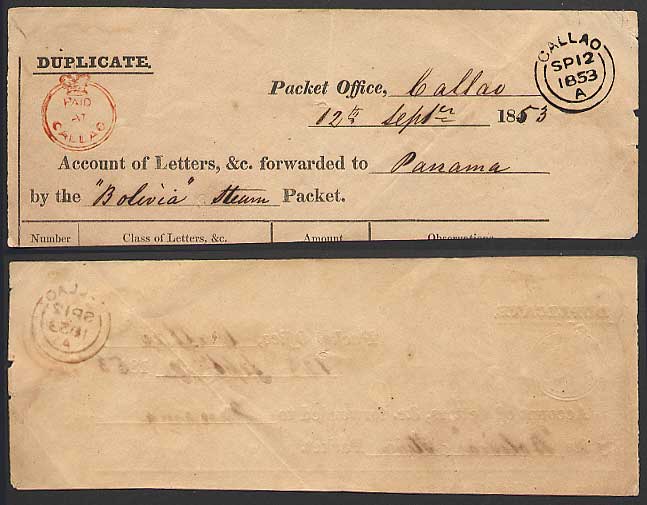 DUPLICATE.
PAID
AT
CALLAO
Packet Office, Callao
12th Septber 1853
CALLAO
SP 12
1853
A
Account of Letters, &c. forwarded to Panama
by the "Bolivia" Steam Packet.
Number Class of Letters, &c. Amount Observations
CALLAO
SP 12
1853
A